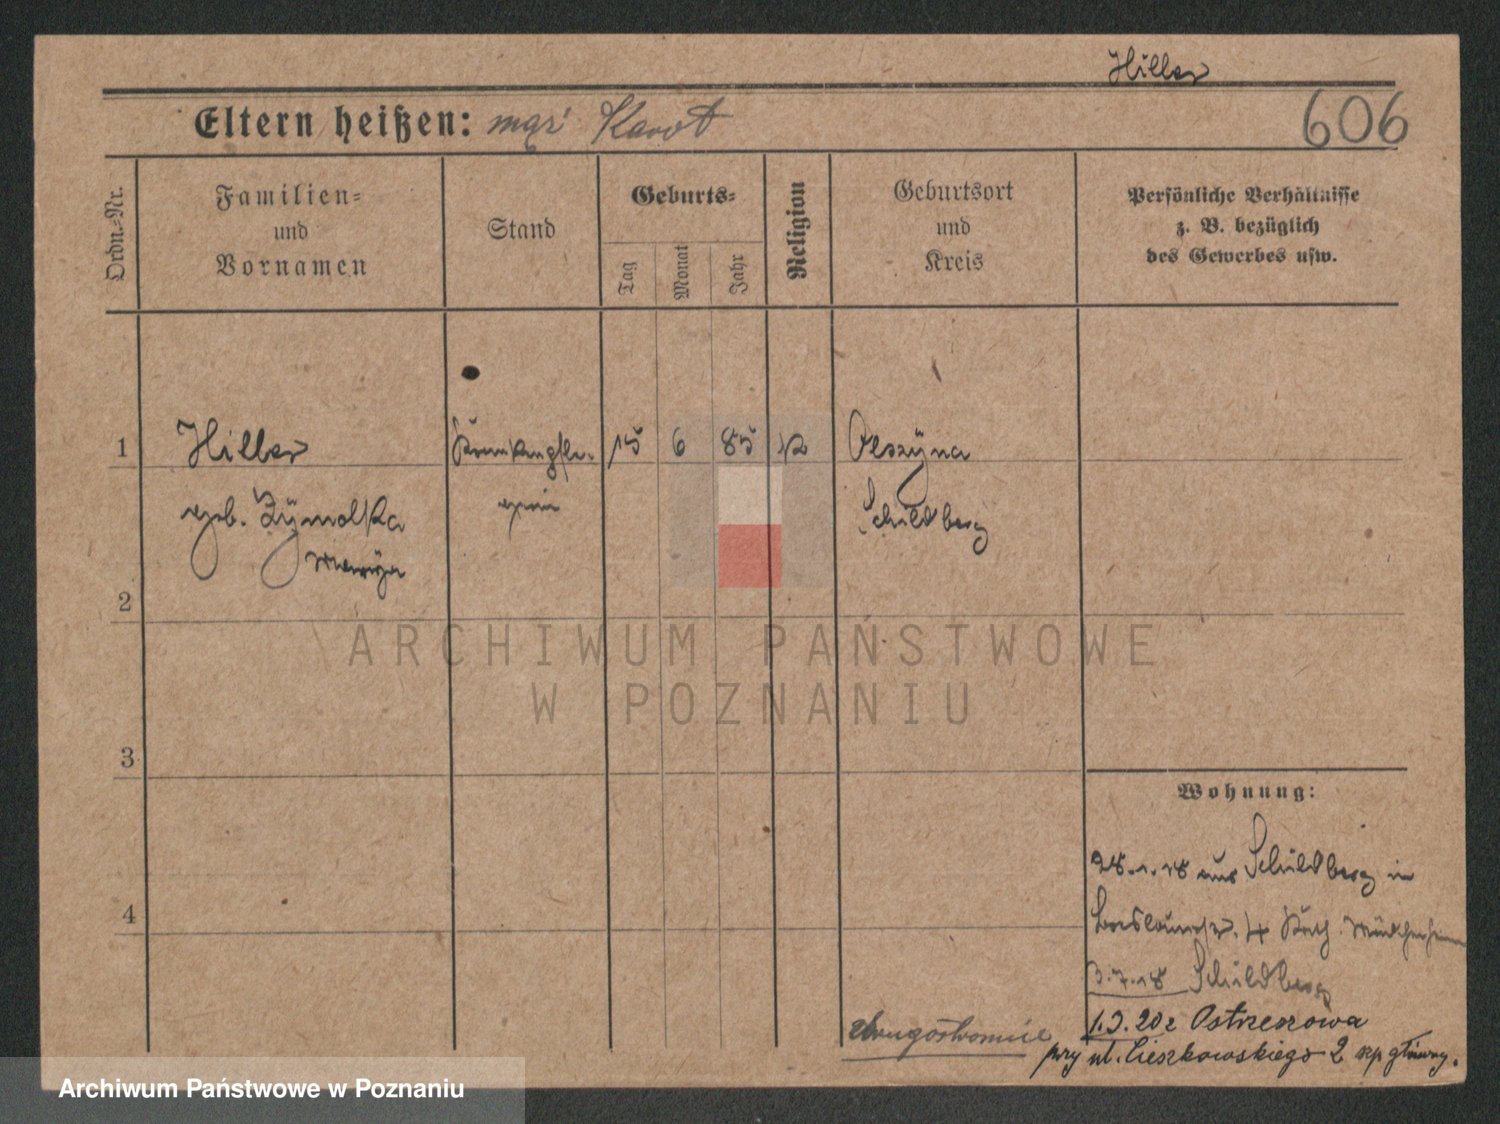 Hiller
Eltern heißen:
606
Ordn.-Nr.
Familien-
und
Vornamen
Stand
Geburts-
Tag
Monat
Jahr
Religion
Geburtsort
und
Kreis
Persönliche Verhältnisse
z. B. bezüglich
des Gewerbes usw.
1 Hiller Krankenpfle- 15 6 85 Olszÿna
geb. gerin Schildberg
2
ARCHIWUM PAŃSTWOWE
W POZNANIU
3
Wohnung:
28.1.18 aus Schildberg in
4 4 Kath.
3.7.18 Schildberg
20 z Ostrzeszowa
przy ul. Cieszkowskiego 2 szp. główny.
Archiwum Państwowe w Poznaniu